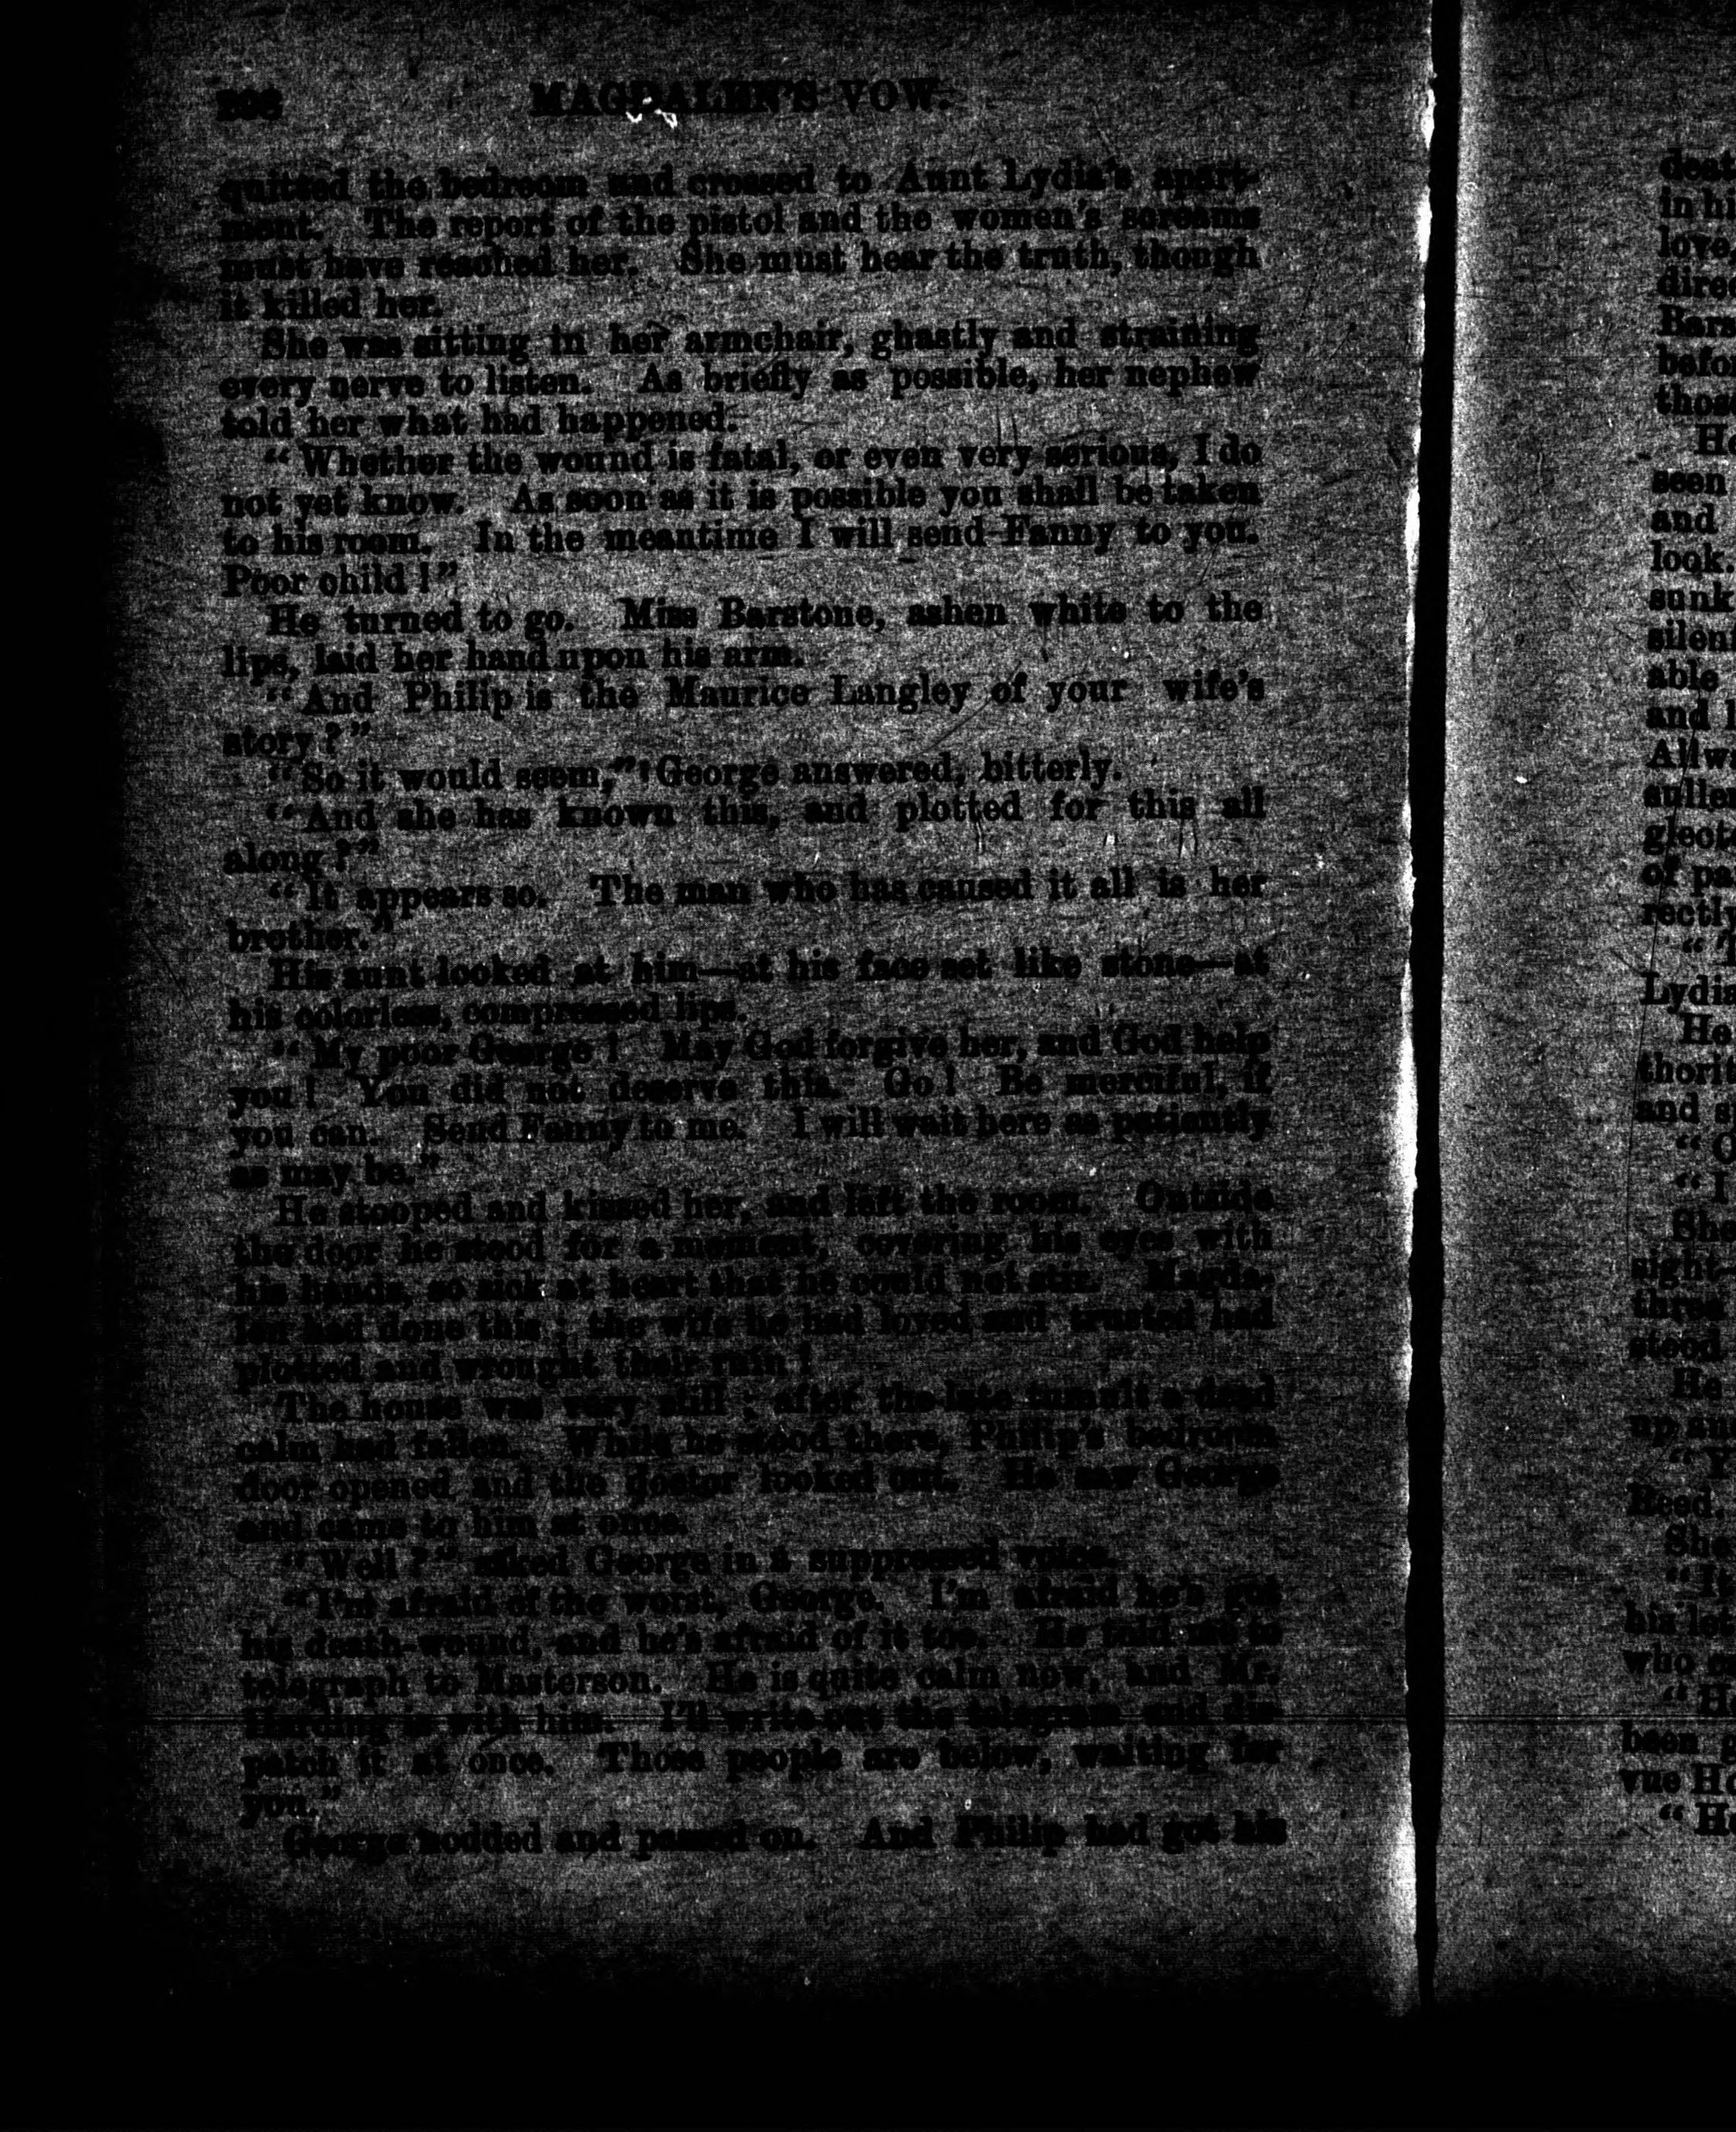 MAGDALEN'S VOW.
quitted the bedroom and crossed to Aunt Lydia's apart-
ment. The report of the pistol and the women's screams
must have reached her. She must hear the truth, though
it killed her.
She was sitting in her armchair, ghastly and straining
every nerve to listen. As briefly as possible, her nephew
told her what had happened.
"Whether the wound is fatal, or even very serious, I do
not yet know. As soon as it is possible you shall be taken
to his room. In the meantime I will send Fanny to you.
Poor child!"
He turned to go. Miss Barstone, ashen white to the
lips, laid her hand upon his arm.
"And Philip is the Maurice Langley of your wife's
story?"
"So it would seem," George answered, bitterly.
"And she has known this, and plotted for this all
along?"
"It appears so. The man who has caused it all is her
brother."
His aunt looked at him—at his face set like stone—at
his colorless, compressed lips.
"My poor George! May God forgive her, and God help
you! You did not deserve this. Go! Be merciful, if
you can. Send Fanny to me. I will wait here as patiently
as may be."
He stooped and kissed her, and left the room. Outside
the door he stood for a moment, covering his eyes with
his hands, so sick at heart that he could not stir. Magda-
len had done this; the wife he had loved and trusted had
plotted and wrought their ruin!
The house was very still; after the late tumult a dead
calm had fallen. While he stood there, Philip's bedroom
door opened and the doctor looked out. He saw George
and came to him at once.
"Well?" asked George in a suppressed voice.
"I'm afraid of the worst, George. I'm afraid he's got
his death-wound, and he's afraid of it too. He told me to
telegraph to Masterson. He is quite calm now, and Mr.
Harding is with him. I'll write out the telegram and dis
patch it at once. Those people are below, waiting for
you."
George nodded and passed on. And Philip had got his
in
love,
look.
able
and
"
Lydia
He
and
"
"
She
stood.
He
"
She
"
who
"
been
"